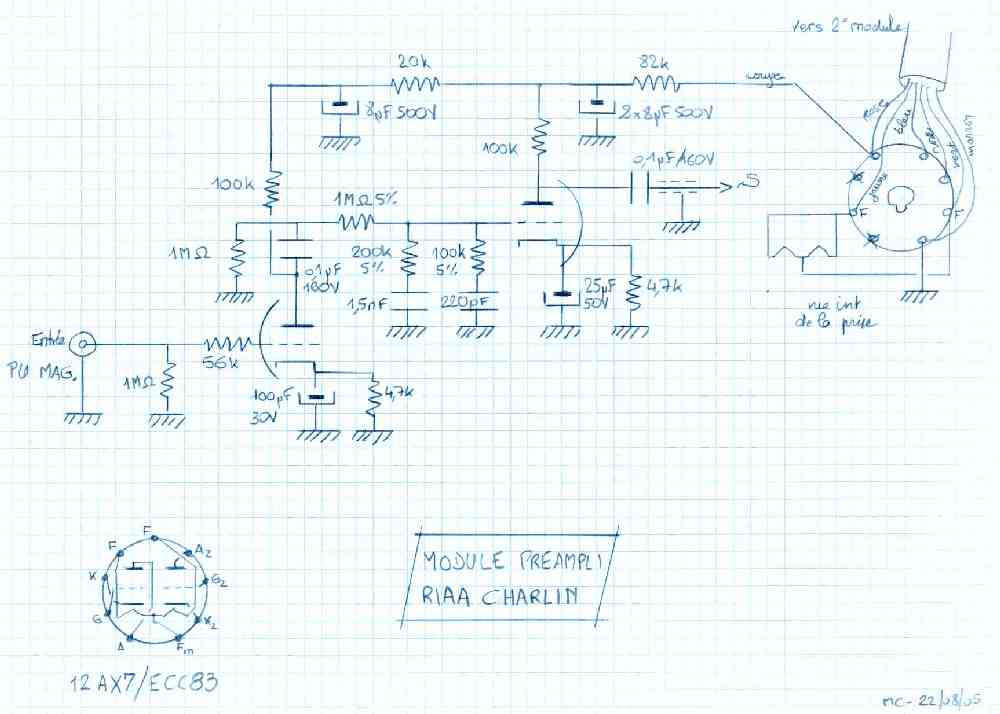 vers 2° module
20k
82k
rouge
8µF 500V
2x8µF 500V
100k
0,1µF/160V
S
100k
1MΩ 5%
1MΩ
0,1µF
160V
200k
5%
100k
5%
1,5nF
220pF
25µF
50V
4,7k
bleu
marron
F
F
vue int
de la prise
Entrée
PU MAG.
1MΩ
56k
100µF
30V
4,7k
F
F
A2
K
G2
G
K2
A
Fm
12AX7/ECC83
MODULE PREAMPLI
RIAA CHARLIN
MC - 22/08/05